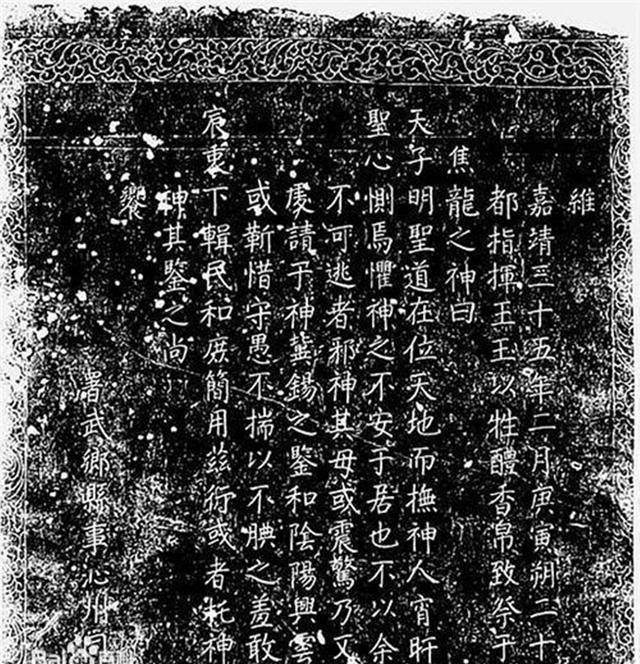 維
嘉靖三十五年二月庚寅朔二十
都指揮王王以牲醴香帛致祭于
焦龍之神曰
天子明聖道在位天地而撫神人宵旰
聖心惻焉懼神之不安于居也不以余
不可逃者邪神其毋或震驚乃又
虔請于神冀錫之鑒和陰陽興雲
或靳惜守愚不揣以不腆之羞敢
宸衷下輯民和庶簡用茲行或者托神
神其鑒之尚
饗
署武鄉縣事沁州同